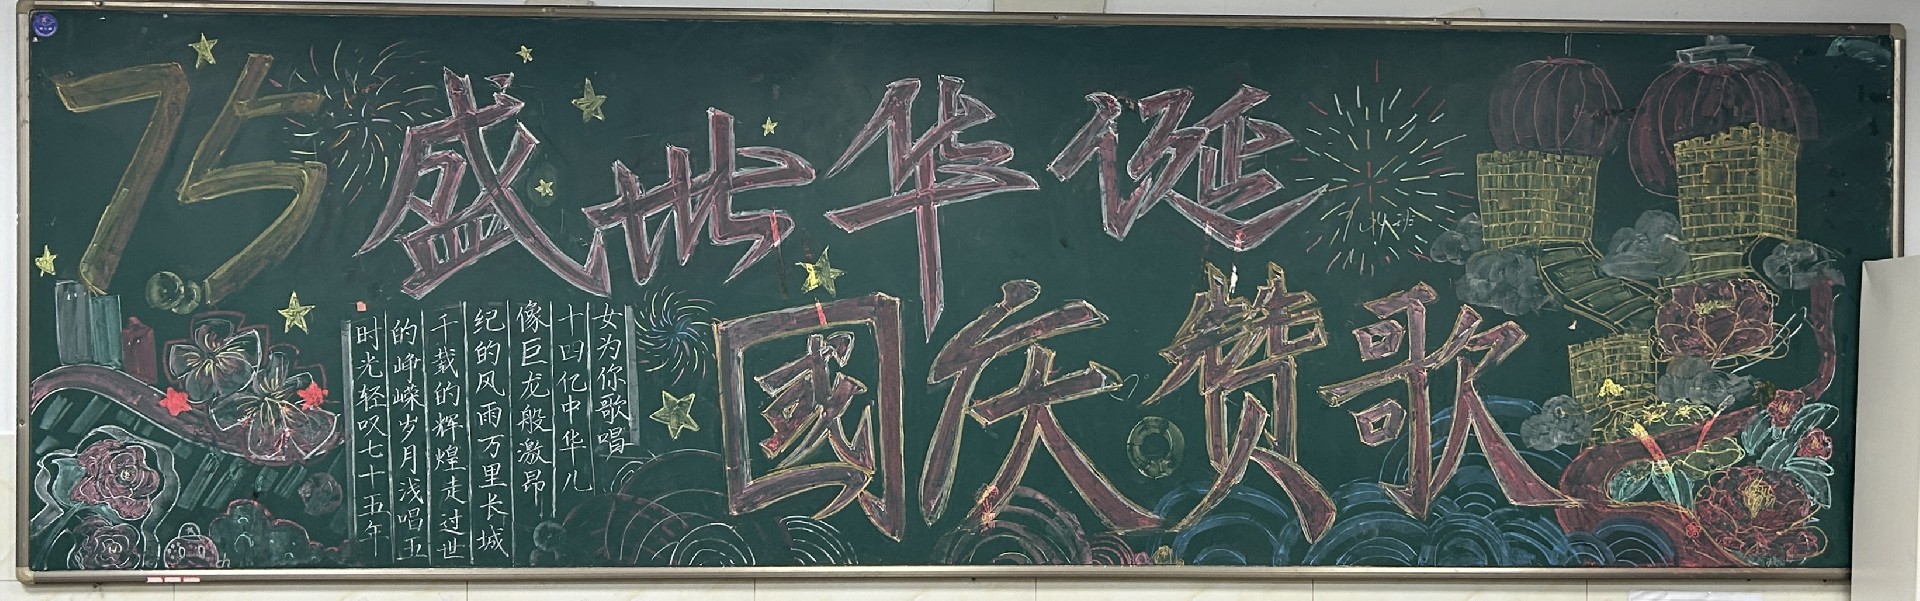 75
盛世华诞
國庆赞歌
时光轻叹七十五年
的峥嵘岁月浅唱五
千载的辉煌走过世
纪的风雨万里长城
像巨龙般激昂
十四亿中华儿
女为你歌唱